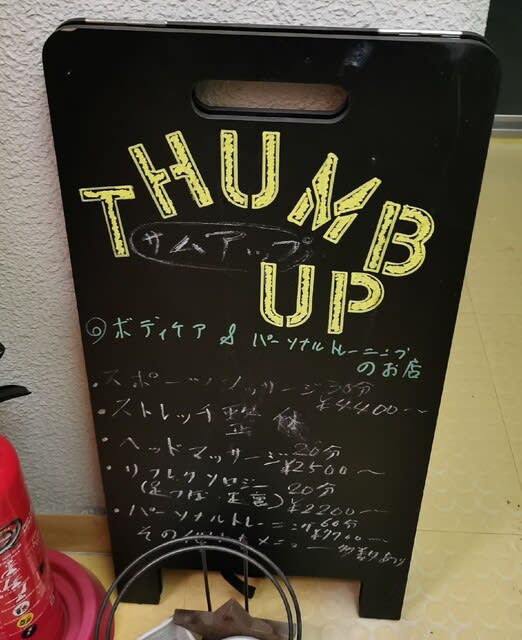 THUMB
サムアップ
UP
ボディケア & パーソナルトレーニング
のお店
・スポーツマッサージ 30分
・ストレッチ整体 ¥4400〜
・ヘッドマッサージ 20分
¥2500〜
・リフレクソロジー 20分
(足つぼ・足裏) ¥2200〜
・パーソナルトレーニング 60分
¥7700〜
その他
メニュー 多数あり